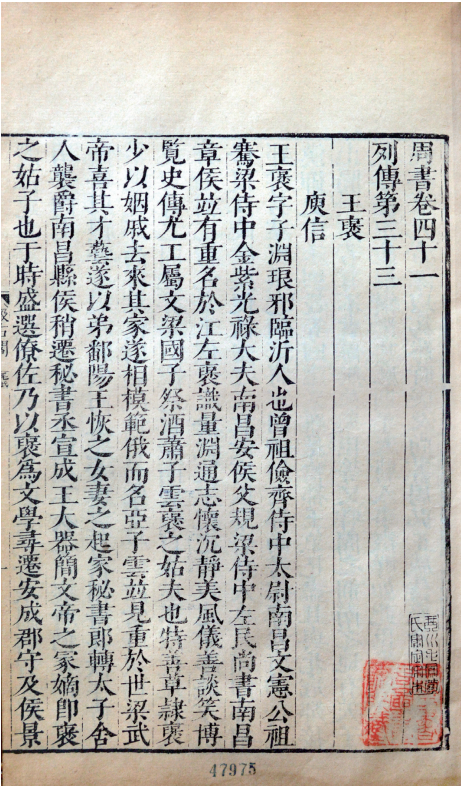 周書卷四十一
列傳第三十三
王褒
庾信
王褒字子淵琅邪臨沂人也曾祖儉齊侍中太尉南昌文憲公祖
騫梁侍中金紫光祿大夫南昌安侯父規梁侍中左民尚書南昌
章侯並有重名於江左褒識量淵通志懷沉靜美風儀善談笑博
覽史傳尤工屬文梁國子祭酒蕭子雲褒之姑夫也特善草隸褒
少以姻戚去來其家遂相模範俄而名亞子雲並見重於世梁武
帝喜其才藝遂以弟鄱陽王恢之女妻之起家秘書郎轉太子舍
人襲爵南昌縣侯稍遷秘書丞宣成王大器簡文帝之冢嫡即褒
之姑子也于時盛選僚佐乃以褒爲文學尋遷安成郡守及侯景
47975